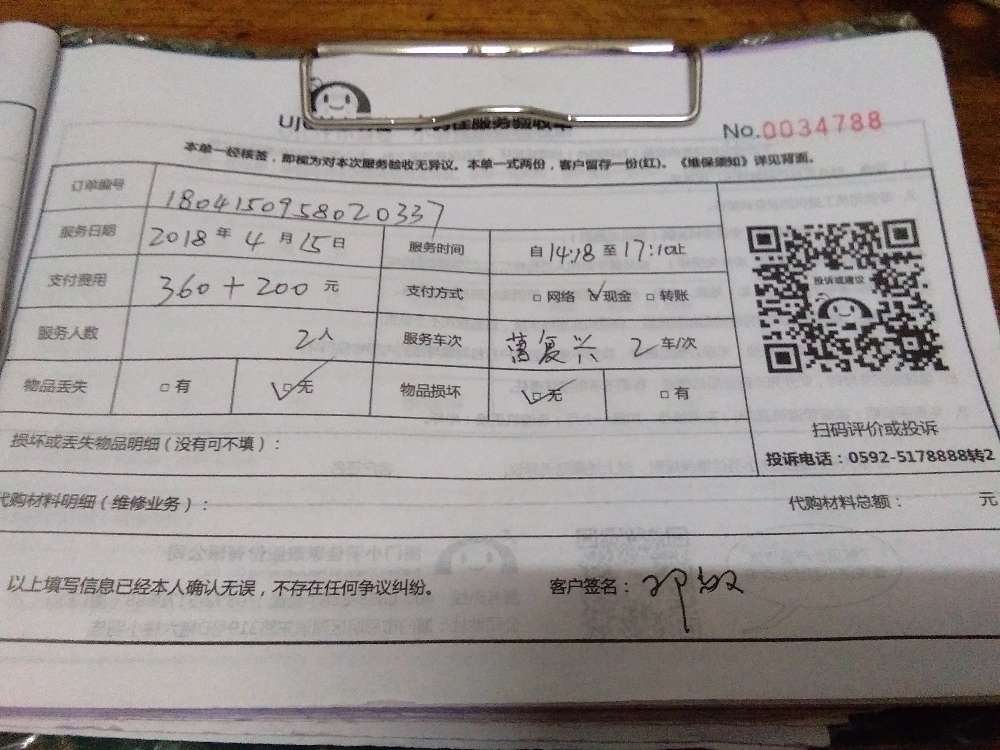 No.0034788
本单一经核签，即视为对本次服务验收无异议。本单一式两份，客户留存一份(红)。《维保须知》详见背面。
订单编号 1804150958020337
服务日期 2018 年 4 月 15 日 服务时间 自 14:18 至 17:10 止
支付费用 360 + 200 元 支付方式 □ 网络 ☑ 现金 □ 转账
服务人数 2人 服务车次 复兴 2 车/次
物品丢失 □ 有 ☑ 无 物品损坏 ☑ 无 □ 有
投诉或建议
扫码评价或投诉
投诉电话：0592-5178888转2
损坏或丢失物品明细（没有可不填）：
代购材料明细（维修业务）： 代购材料总额： 元
以上填写信息已经本人确认无误，不存在任何争议纠纷。 客户签名：